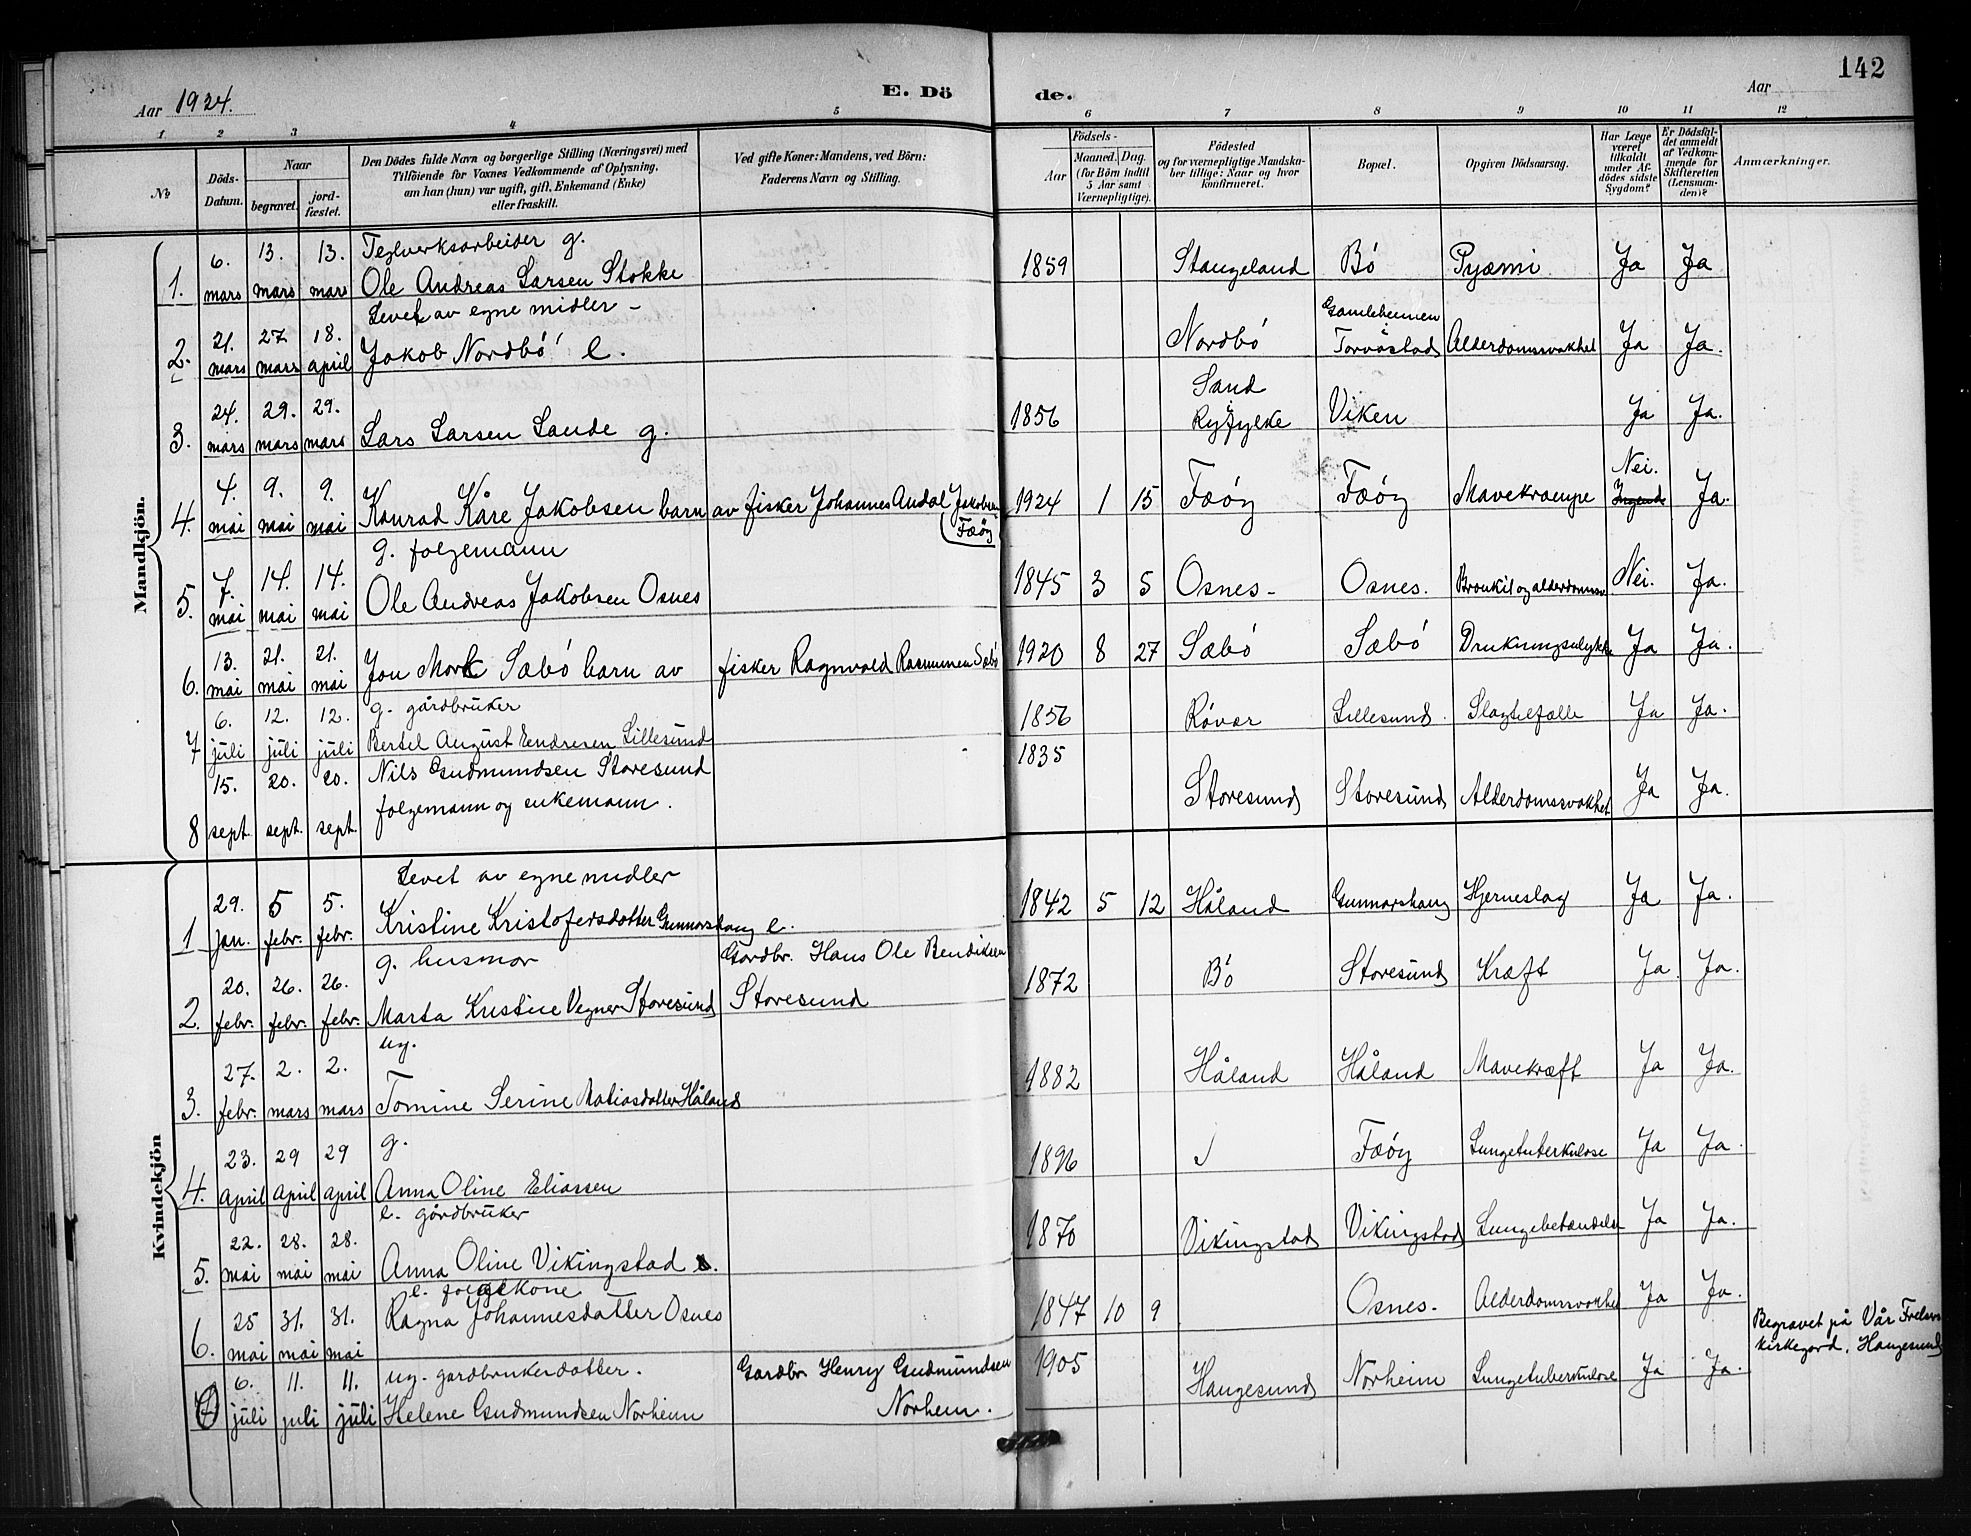 142
Aar 1924.
E. Dö de.
Aar
1 2 3 4 5 6 7 8 9 10 11 12
No
Döds-
Datum.
Naar
begravet.
jord-
fæstet.
Den Dödes fulde Navn og borgerlige Stilling (Næringsvei) med
Tilföiende for Voxnes Vedkommende af Oplysning,
om han (hun) var ugift, gift, Enkemand (Enke)
eller fraskilt.
Ved gifte Koner: Mandens, ved Börn:
Faderens Navn og Stilling.
Födsels-
Aar
Maaned. Dag.
(for Börn indtil
5 Aar samt
Værnepligtige).
Födested
og for værnepligtige Mandska-
ber tillige: Naar og hvor
konfirmeret.
Bopæl.
Opgiven Dödsaarsag.
Har Læge
været
tilkaldt
under Af-
dödes sidste
Sygdom?
Er Dödsfal-
det anmeldt
af Vedkom-
mende for
Skifteretten
(Lensman-
den)?
Anmærkninger.
Mandkjön.
1. 6. mars 13. mars 13. mars
Teglverksarbeider g.
Ole Andreas Larsen Stokke
1859 Stangeland Bö Pyæmi Ja Ja
2. 21. mars 27 mars 18. april
Levet av egne midler -
Jakob Nordbö e.
Nordbö Gamleheimen Torvastad Alderdomssvakhet Ja Ja.
3. 24. mars 29. mars 29. mars
Lars Larsen Sande g.
1856 Sand i Ryfylke Viken Ja Ja.
4. 4. mai 9. mai 9. mai
Konrad Kåre Jakobsen barn av fisker Johannes Andal Jakobsen
Fæöy
1924 1 15 Fæöy Fæöy Mavekrampe Nei. Ja.
5. 7. mai 14. mai 14. mai
g. folgemann
Ole Andreas Jakobsen Osnes
1845 3 5 Osnes - Osnes. Bronkit og alderdomssv. Nei. Ja.
6. 13. mai 21. mai 21. mai
Jon Mork Sæbö barn av fisker Ragnvald Rasmussen Sæbö
1920 8 27 Sæbö Sæbö Drukningsulykke Ja Ja.
7 6. juli 12. juli 12. juli
g. gårdbruker
Bertel August Endresen Lillesund
1856 Rövær Lillesund. Slagtilfælle Ja Ja.
8 15. sept. 20. sept. 20. sept.
Nils Gudmundsen Storesund
folgemann og enkemann.
1835 Storesund Storesund Alderdomssvakhet Ja Ja.
Kvindekjön
1 29. jan. 5 febr. 5. febr.
Levet av egne midler
Kristine Kristofersdotter Gunnarshaug e.
1842 5 12 Håland Gunnarshaug Hjerneslag Ja Ja.
2. 20. febr. 26. febr. 26. febr.
g. husmor
Marta Kristine Vegner Storesund
Gardbr. Hans Ole Bendiksen
Storesund
1872 Bö Storesund Kræft Ja Ja.
3. 27. febr. 2. mars 2. mars
ug.
Tomine Serine Matiasdotter Håland
1882 Håland Håland Mavekræft Ja Ja.
4. 23. april 29 april 29 april
g.
Anna Oline Eliassen
1896 Fæöy Lungetuberkulose Ja Ja.
5. 22. mai 28. mai 28. mai
e. gårdbruker
Anna Oline Vikingstad
1870 Vikingstad Vikingstad Lungebetændelse Ja Ja.
6. 25 mai 31. mai 31. mai
e. folgekone
Ragna Johannesdatter Osnes
1847 10 9 Osnes. Alderdomssvakhet Ja Ja.
7 6. juli 11. juli 11. juli
ug. gardbrukerdotter.
Helene Gudmundsen Norheim
Gardbr. Henry Gudmundsen
Norheim.
1905 Haugesund Norheim Lungetuberkulose Ja Ja.
Begravet på Vår Frelsers
kirkegard, Haugesund